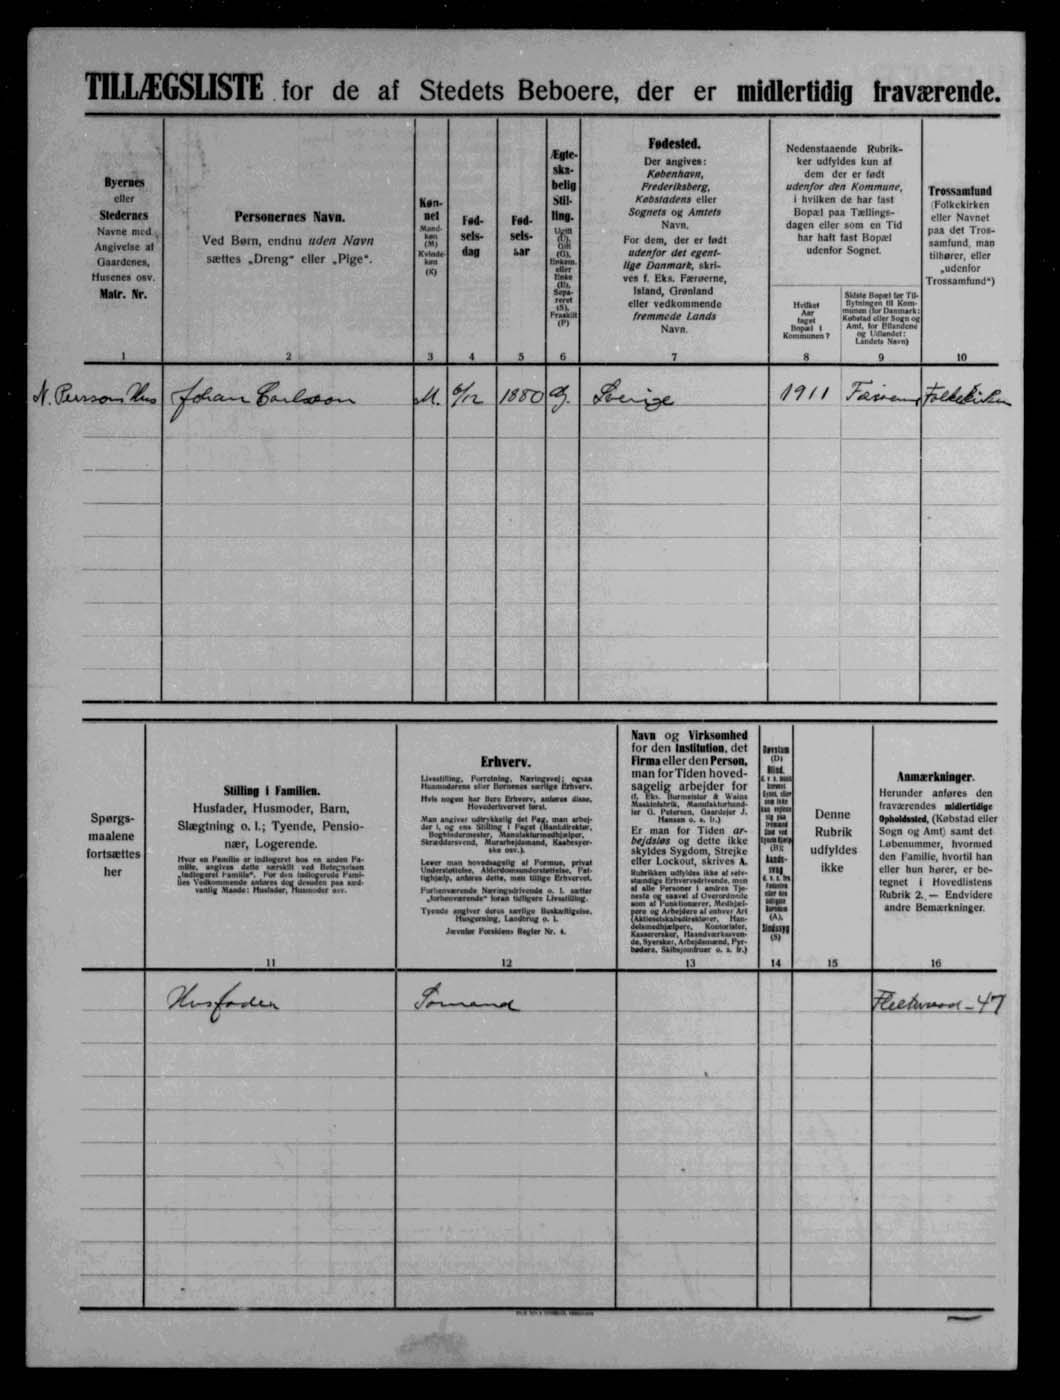 TILLÆGSLISTE for de af Stedets Beboere, der er midlertidig fraværende.
Byernes
eller
Stedernes
Navne med
Angivelse af
Gaardenes,
Husenes osv.
Matr. Nr.
1
Personernes Navn.
Ved Børn, endnu uden Navn
sættes „Dreng“ eller „Pige“.
2
Køn-
net
Mand-
køn
(M)
Kvinde-
køn
(K)
3
Fød-
sels-
dag
4
Fød-
sels-
aar
5
Ægte-
ska-
belig
Stil-
ling.
Ugift
(U),
Gift
(G),
Enkem.
eller
Enke
(E),
Sepa-
reret
(S),
Fraskilt
(F)
6
Fødested.
Der angives:
København,
Frederiksberg,
Købstadens eller
Sognets og Amtets
Navn.
For dem, der er født
udenfor det egent-
lige Danmark, skri-
ves f. Eks. Færøerne,
Island, Grønland
eller vedkommende
fremmede Lands
Navn.
7
Nedenstaaende Rubrik-
ker udfyldes kun af
dem der er født
udenfor den Kommune,
i hvilken de har fast
Bopæl paa Tællings-
dagen eller som en Tid
har haft fast Bopæl
udenfor Sognet.
Hvilket
Aar
taget
Bopæl i
Kommunen?
8
Sidste Bopæl før Til-
flytningen til Kom-
munen (for Danmark:
Købstad eller Sogn og
Amt, for Bilandene
og Udlandet:
Landets Navn)
9
Trossamfund
(Folkekirken
eller Navnet
paa det Tros-
samfund, man
tilhører, eller
„udenfor
Trossamfund“)
10
N. Perssons Hus Johan Carlsson M. 6/12 1880 G. Sverige 1911 Færøerne Folkekirken
Spørgs-
maalene
fortsættes
her
Stilling i Familien.
Husfader, Husmoder, Barn,
Slægtning o. l.; Tyende, Pensio-
nær, Logerende.
Hvor en Familie er indlogeret hos en anden Fa-
milie, angives dette særskilt ved Betegnelsen
„indlogeret Familie“. For den indlogerede Fami-
lies Vedkommende anføres dog desuden paa sæd-
vanlig Maade: Husfader, Husmoder osv.
11
Erhverv.
Livsstilling, Forretning, Næringsvej; ogsaa
Husmoderens eller Børnenes særlige Erhverv.
Hvis nogen har flere Erhverv, anføres disse,
Hovederhvervet først.
Man angiver udtrykkelig det Fag, man arbej-
der i, og ens Stilling i Faget (Bankdirektør,
Bogbindermester, Manufakturmedhjælper,
Skræddersvend, Murarbejdsmand, Kaabesyer-
ske osv.).
Lever man hovedsagelig af Formue, privat
Understøttelse, Alderdomsunderstøttelse, Fat-
tighjælp, anføres dette, men tillige Erhvervet.
Forhenværende Næringsdrivende o. l. sætter
„forhenværende“ foran tidligere Livsstilling.
Tyende angiver deres særlige Beskæftigelse,
Husgerning, Landbrug o. l.
Jævnfør Forsidens Regler Nr. 4.
12
Navn og Virksomhed
for den Institution, det
Firma eller den Person,
man for Tiden hoved-
sagelig arbejder for
(f. Eks. Burmeister & Wains
Maskinfabrik, Manufakturhand-
ler G. Petersen, Gaardejer J.
Hansen o. s. fr.)
Er man for Tiden ar-
bejdsløs og dette ikke
skyldes Sygdom, Strejke
eller Lockout, skrives A.
Rubrikken udfyldes ikke af selv-
stændige Erhvervsdrivende, men
af alle Personer i andres Tje-
neste og saavel af Overordnede
som af Funktionærer, Medhjæl-
pere og Arbejdere af enhver Art
(Aktieselskabsdirektører, Han-
delsmedhjælpere, Kontorister,
Kassererskер, Haandværkssven-
de, Syersker, Arbejdsmænd, Fyr-
bødere, Skibsjomfruer o. s. fr.)
13
Døvstum
(D)
Blind,
14
Denne
Rubrik
udfyldes
ikke
15
Anmærkninger.
Herunder anføres den
fraværendes midlertidige
Opholdssted, (Købstad eller
Sogn og Amt) samt det
Løbenummer, hvormed
den Familie, hvortil han
eller hun hører, er be-
tegnet i Hovedlistens
Rubrik 2. — Endvidere
andre Bemærkninger.
16
Husfader Sømand Fleetwood - 47